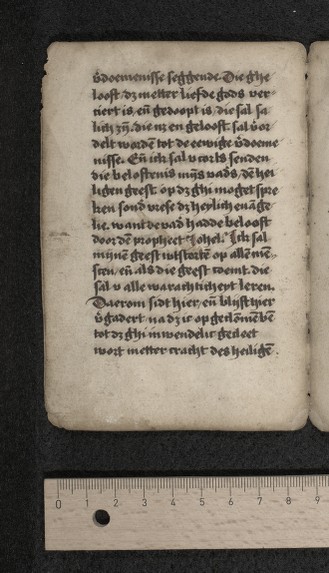 v̄doemenisse seggende. Die ghe
looft dz metter liefde gods ver-
ciert is, en̄ gedoopt is, die sal sa
lich zȳ. die nz en gelooft sal v̄or
delt wordē tot de eewige v̄doeme
nisse. En̄ ick sal v corls senden
die beloftenis mijs vads. dē hei
ligen geest. op dz ghi moget spre
ken sond vrese dz heylich euāge-
lie. want de vad hadde belooft
door dē propheet Johel. Ick sal
mijnē geest wtstortē op allē mē-
schē. en̄ als die geest coemt. die
sal v alle warachticheyt leren.
Daerom sidt hier, en̄ blijft hier
v̄gadert na dz ic op geclōmē bē
tot dz ghi inwendelic gecleet
wort metter cracht des heiligē.
0 1 2 3 4 5 6 7 8 9